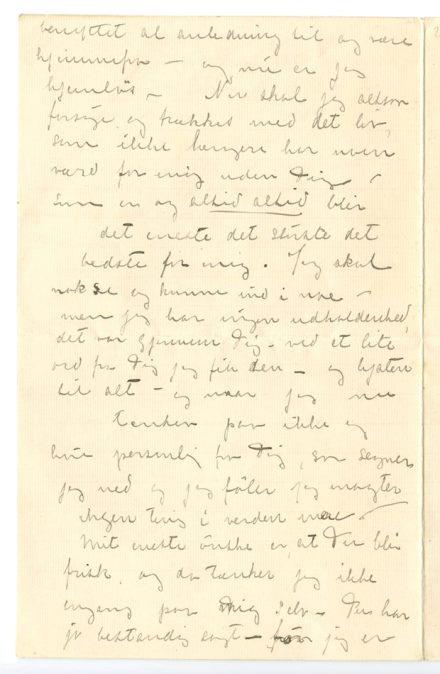 benyttet al anledning til og være
hjemmefra – og nu er jeg
hjemløs – Nu skal jeg altsaa
forsøge og trækkes med det liv,
som ikke længere har noen
værd for mig uden Dig –
som en og altid altid blir
det eneste det største det
bedste for mig. Jeg skal
nok se og kunne ind i noe –
men jeg har ingen udholdenhed,
det var gjennem Dig – ved et lite
ord fra Dig jeg fik den – og hjalten
til alt – og naar jeg nu
tænker paa ikke og
høre personlig fra Dig, saa segner
jeg ned og jeg føler jeg magter
ingen ting i verden mere –
Mit eneste ønske er, at Du blir
frisk, og da tænker jeg ikke
engang paa mig selv – Du har
jo bestandig sagt – før jeg er